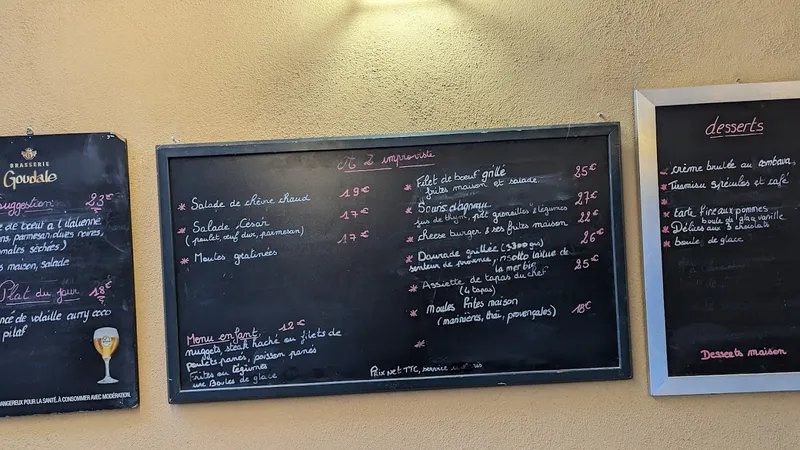 BRASSERIE
Goudale
Suggestion 23€
de bœuf a l'italienne
parmesan, olives noires,
tomales séchées)
maison, salade
Plat du jour 18€
de volaille curry coco
pilaf
DANGEREUX POUR LA SANTÉ. À CONSOMMER AVEC MODÉRATION.
A L improviste
* Salade de chèvre chaud 19€
* Salade César 17€
(poulet, œuf dur, parmesan)
* Moules gratinées 17€
Menu enfant 12€
nuggets, steak haché ou filets de
poulets panés, poisson panés
Frites ou légumes
une Boules de glace
* Filet de bœuf grillé 25€
frites maison et salade
* Souris d'agneau 27€
jus de thym, p'tit grenailles & légumes
* cheese burger & ses frites maison 22€
* Daurade grillée (±300 grs) 26€
senteur de provence, risotto laitue de
la mer bio
* Assiette de tapas du chef 25€
(4 tapas)
* Moules Frites maison 18€
(marinières, thaï, provençales)
*
Prix Net TTC, service
desserts
* Crème brulée au combava,
* Tiramisu Spéculos et café
*
* tarte fine aux pommes
boule de glace vanille
* Délices aux 3 chocolats
* boule de glace
Desserts maison